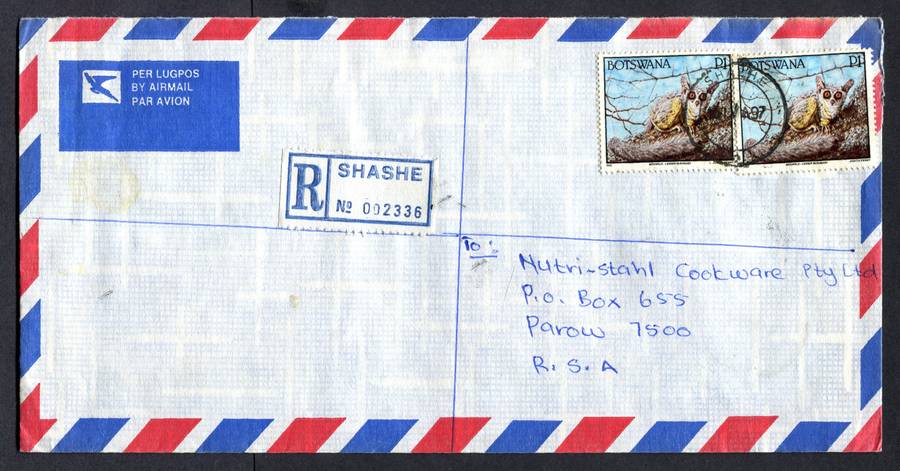 PER LUGPOS
BY AIRMAIL
PAR AVION
BOTSWANA P1
BOTSWANA P1
SHASHE
97
R
SHASHE
Nº 002336
To:
Nutri-stahl Cookware Pty Ltd
P.O. Box 655
Parow 7500
R.S.A